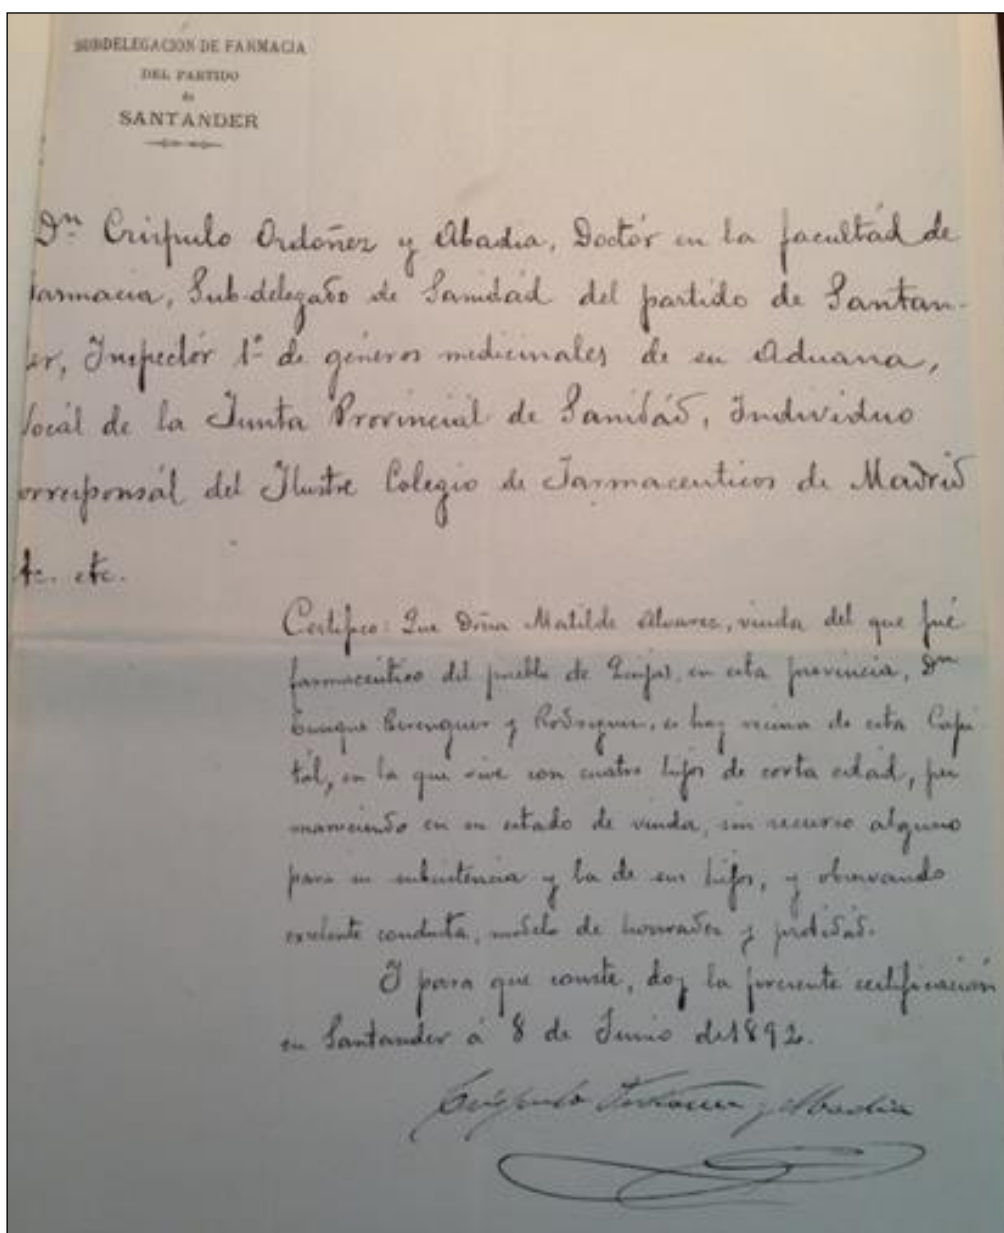 SUBDELEGACION DE FARMACIA
DEL PARTIDO
de
SANTANDER
Dn Crispulo Ordoñez y Abadia, Doctór en la facultád de
farmacia, Sub-delegado de Sanidad del partido de Santan-
er, Inspectór 1º de géneros medicinales de su Aduana,
Vocál de la Junta Provincial de Sanidád, Individuo
orresponsál del Ilustre Colegio de Farmaceuticos de Madrid
tc. etc.
Certifico: Que Doña Matilde Alvarez, viuda del que fué
farmaceútico del pueblo de Quijas, en esta provincia, Dn
Enrique Berenguer y Rodriguez, es hoy vecina de esta Capi
tál, en la que vive con cuatro hijos de corta edad, per
maneciendo en su estado de viuda, sin recurso alguno
para su subsistencia y la de sus hijos, y observando
exelente conducta, modelo de honradez y probidád.
Y para que conste, doy la presente certificación
en Santander á 8 de Junio de 1892.
Crispulo Ordoñez y Abadia